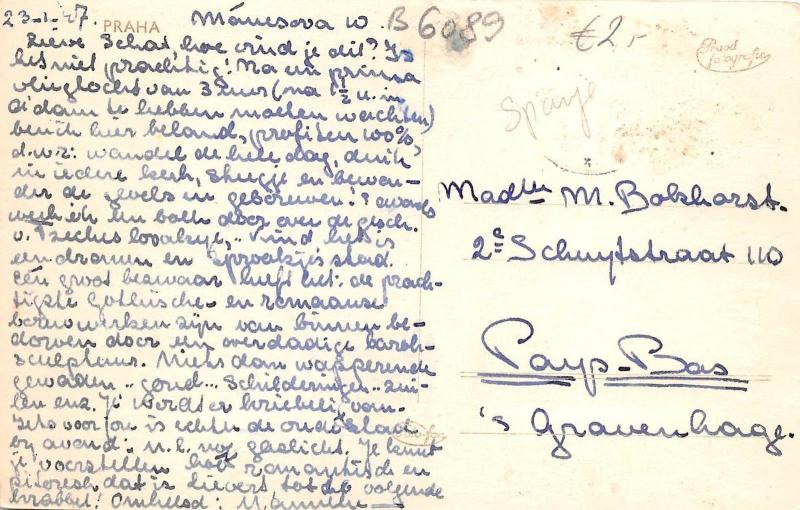 23-1-'47 PRAHA Mánesova 10. B6089
€2,-
Lieve Schat, hoe vind je dit? Is
het niet prachtig! Na een prima
vliegtocht van 3 uur (na 1½ u. in
A'dam te hebben moeten wachten)
ben ik hier beland, profiteer 100%,
d.w.z: wandel de hele dag, duik
in iedere kerk, steegje en bewon-
der de gevels en gebouwen!
en een boek door over de gesch.
v. Tsechoslovakije,
een droom en sprookjesstad.
Eén groot bezwaar heeft het: de prach-
tigste Gothische- en romaanse
bouwwerken zijn van binnen be-
dorven door een overdadige barok-
sculptuur. Niets dan wapperende
gewaden .. goud... Schilderingen .. zui-
len enz. Je wordt er kriebelig van.
Iets voor jou is echter de oude stad
bij avond: n.l. nog gaslicht. Je kunt
je voorstellen hoe romantisch en
pitoresk dat is lieverd tot de volgende
krabbel! Omhelsd:
Spanje
Mad<sup>lle</sup> M. Bokhorst.
2e Schuytstraat 110
Pays-Bas
's Gravenhage.